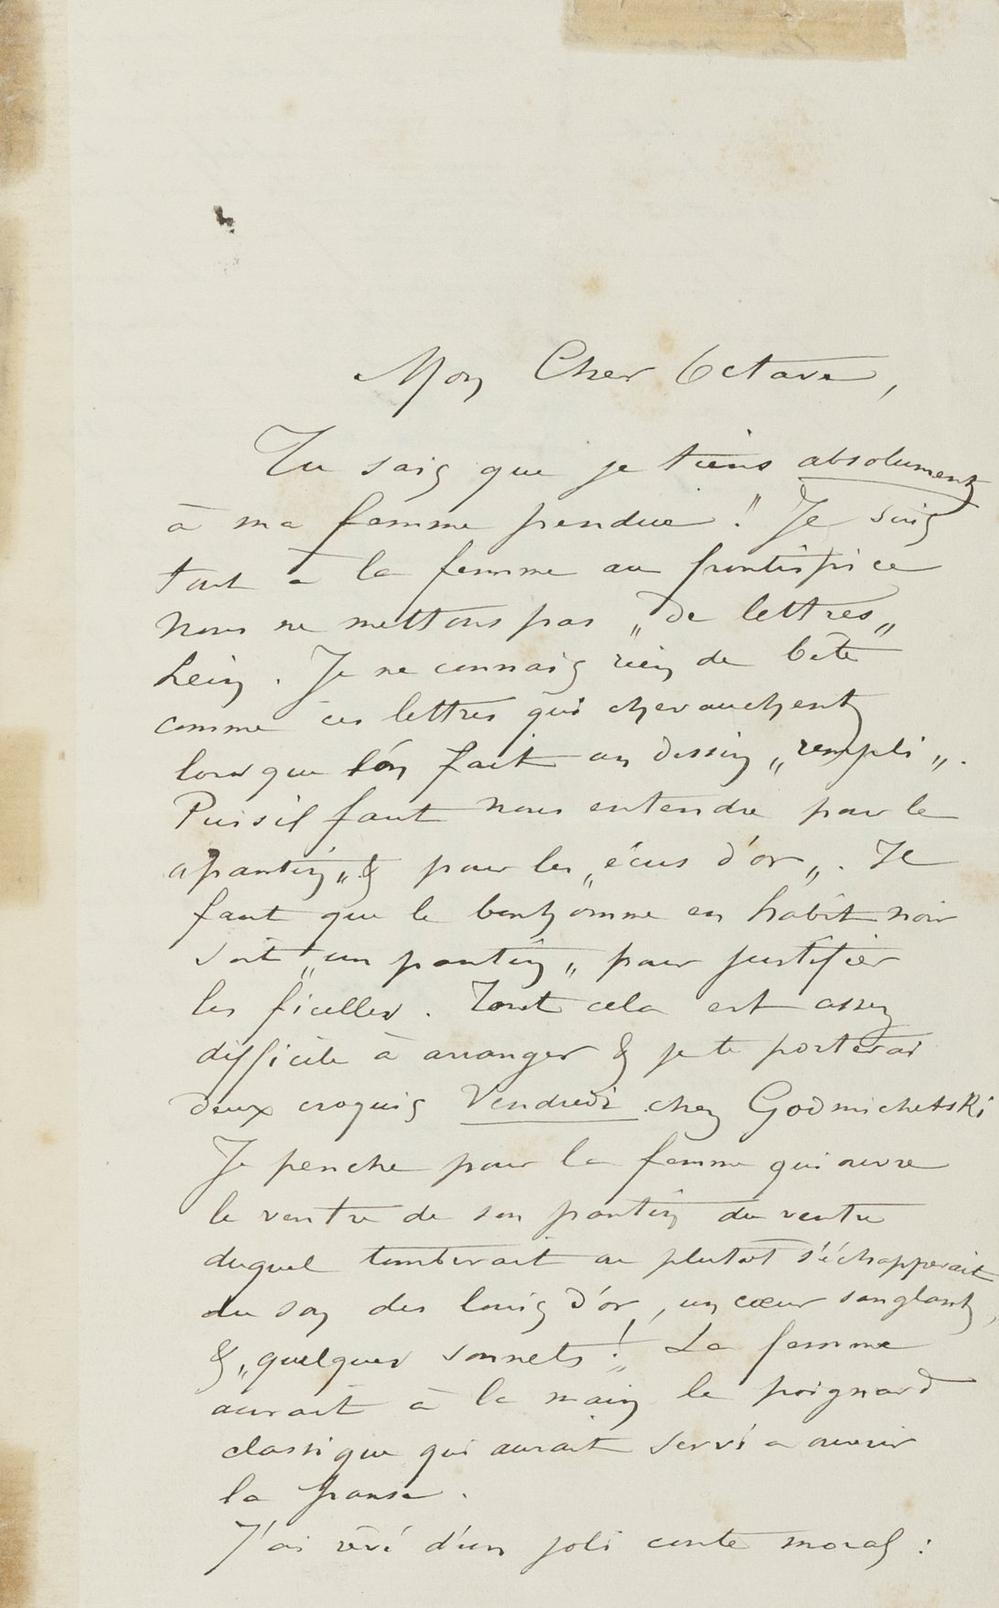 Mon Cher Octave,
Tu sais que je tiens absolument
à ma femme pendue ! Je suis
tout à la femme au frontispice
Nous ne mettons pas „de lettres„
hein . Je ne connais rien de bête
comme ces lettres qui chevauchent
lorsque l'on fait un dessin „rempli„.
Puisil faut nous entendre pour le
„pantin„ & pour les „écus d'or„. Il
faut que le bonhomme en habit noir
soit „un pantin„ pour justifier
les ficelles. Tout cela est assez
difficile à arranger & je te porterai
deux croquis Vendredi chez Godmichetski
Je penche pour la femme qui ouvre
le ventre de son pantin du ventre
duquel tomberait ou plutot s'échapperait
du son des louis d'or, un cœur sanglant,
& „quelques sonnets !„ La femme
aurait à la main le poignard
classique qui aurait servi a ouvrir
la panse.
J'ai rêvé d'un joli conte moral :